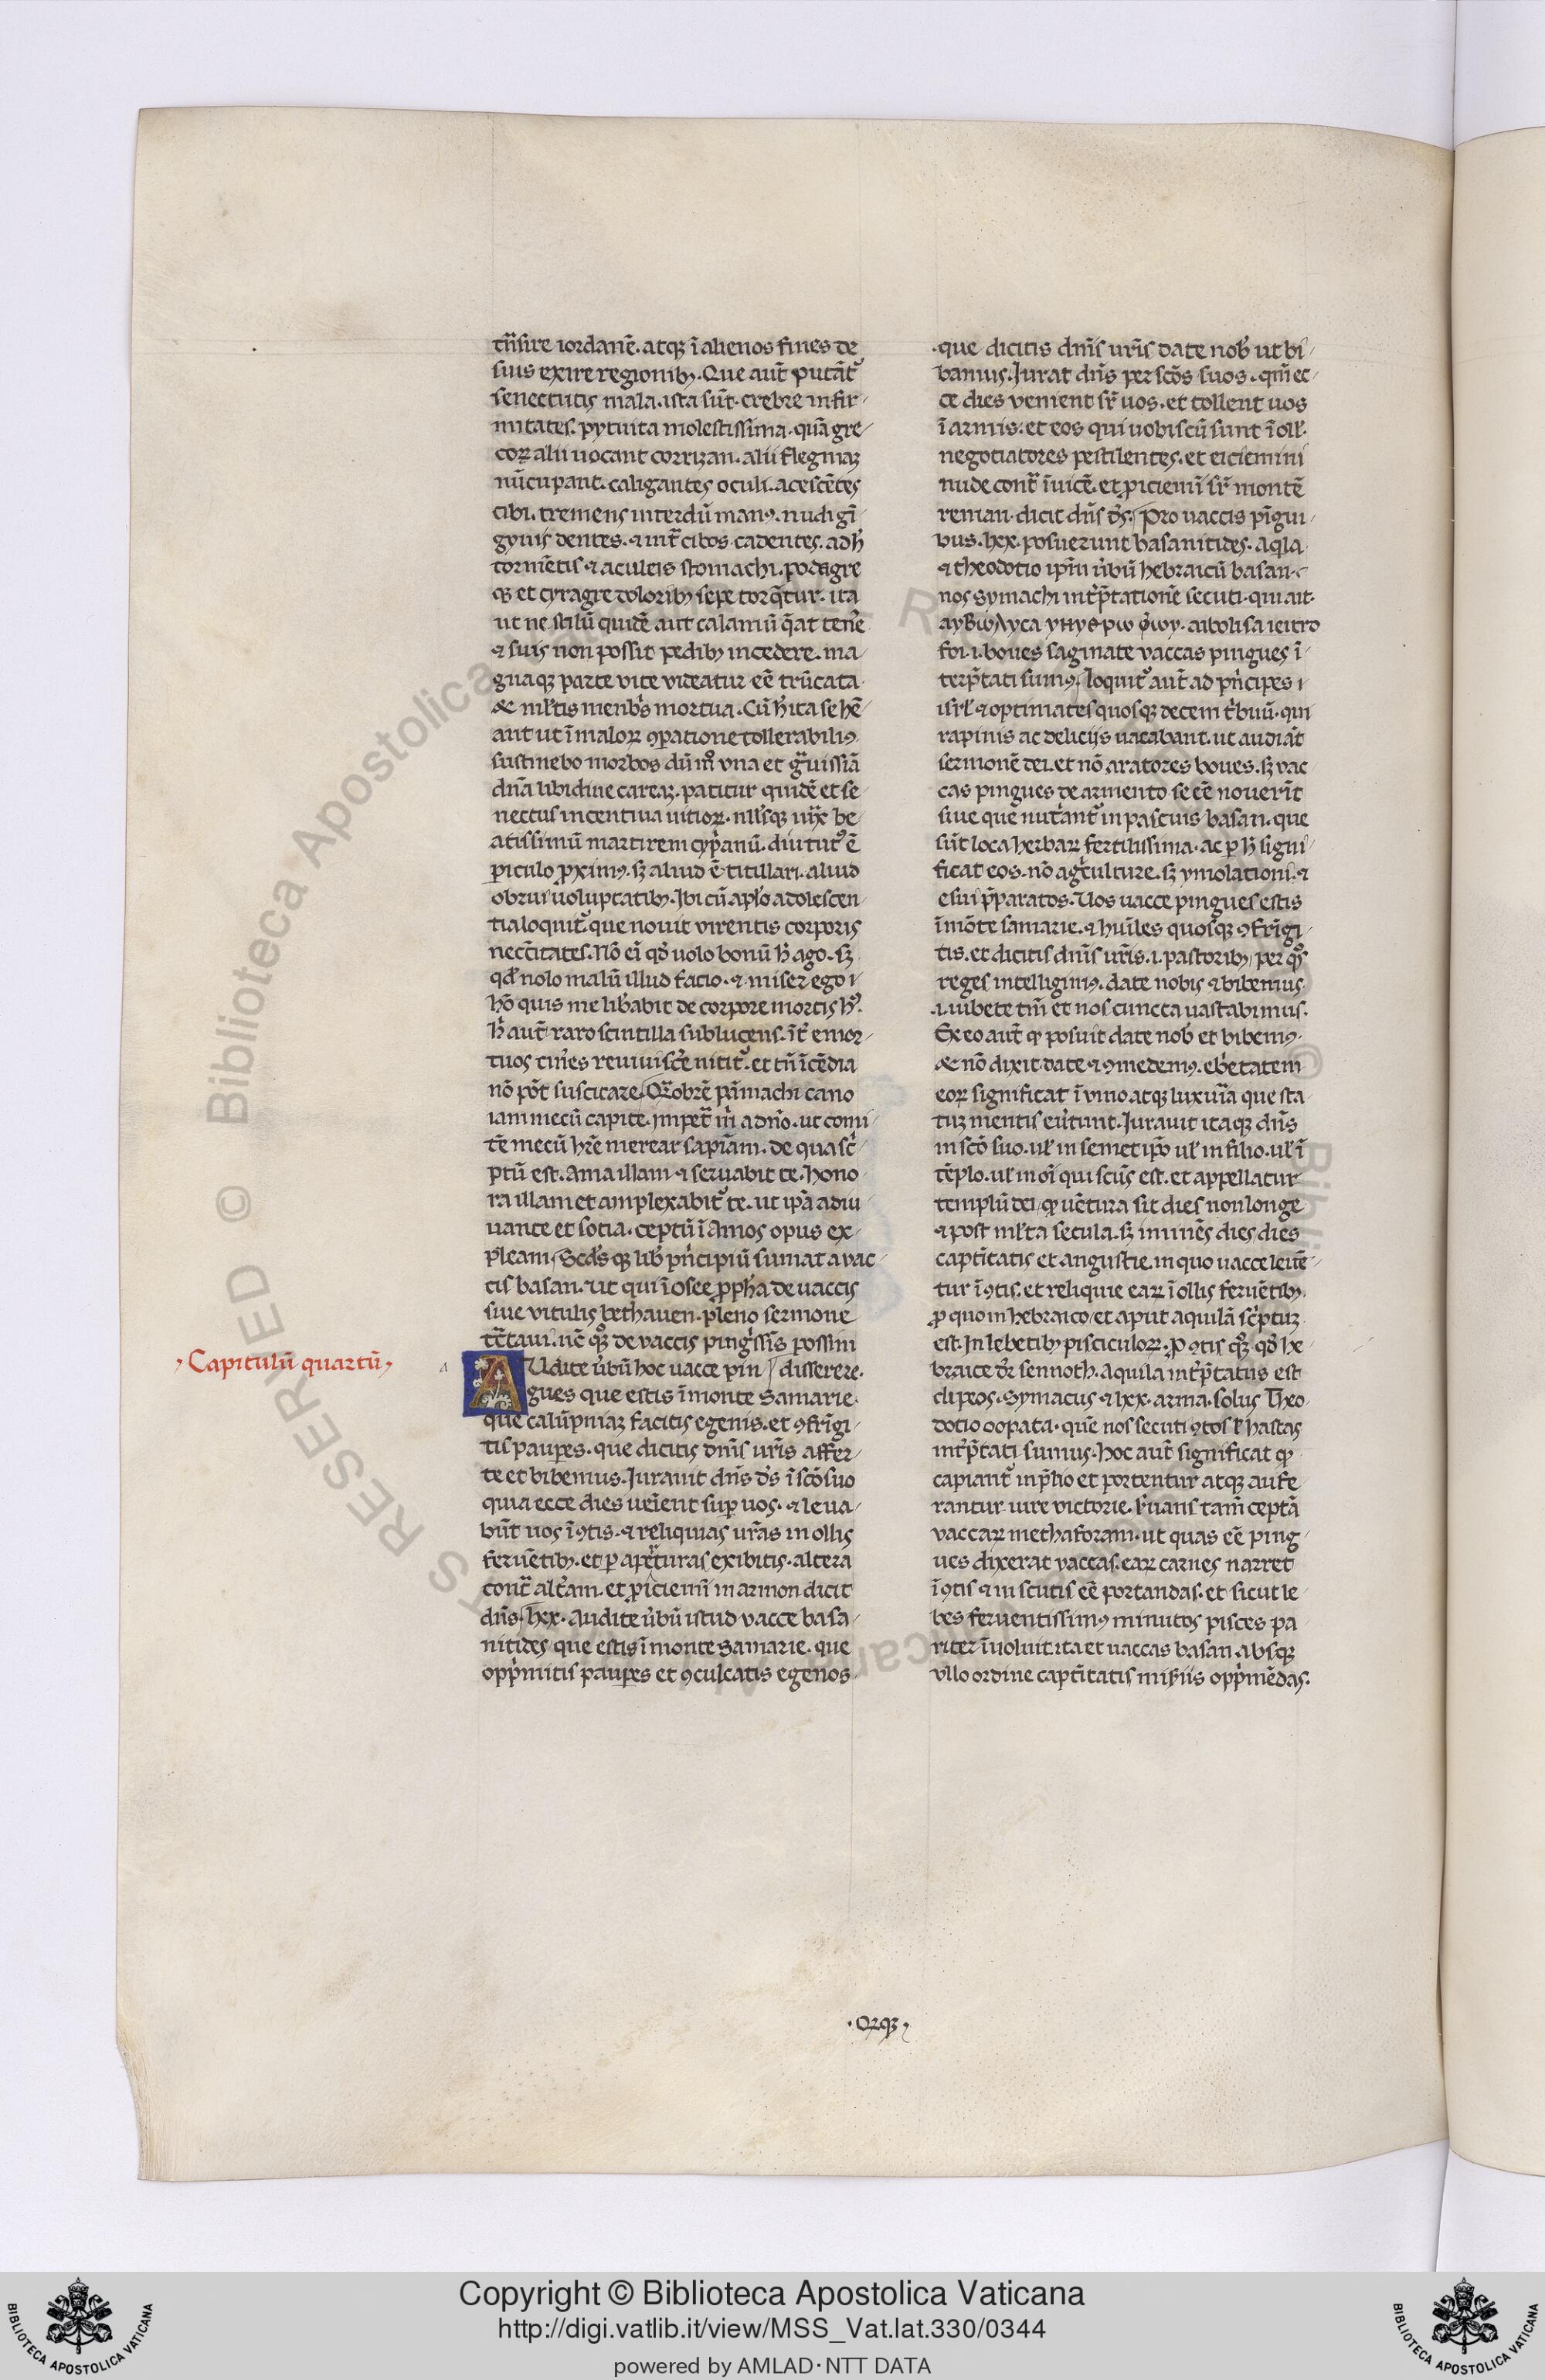 tr̃nsire iordanẽ. atqꝫ ĩ alienos fines de
suis exire regionibꝫ. Que aut̃ putãt᷑
senectutis mala. ista sũt. crebre infir-
mitates. pytuita molestissima. quã gre-
coꝝ alii uocant corrizan. alii flegmaꝫ
nũcupant. caligantes oculi. acescẽtes
cibi. tremens interdũ manꝰ. nudi gĩ-
gyuis dentes. ⁊ int̃ cibos cadentes. ad h̃
tormẽtis ⁊ aculeis stomachi. podagre
qꝫ et cyragre doloribꝫ sepe torq̃tur. ita
ut ne stilũ quidẽ aut calamũ q̃at ten̾e
⁊ suis non possit pedibꝫ incedere. ma-
gnaqꝫ parte vite videatur eẽ trũcata.
⁊c ml̃tis menbris mortua. Cũ h̃ ita se hẽ-
ant ut ĩ maloꝝ ꝯparatione tollerabiliꝰ
sustinebo morbos dũm̊ vna et gͣuissiã
dñã libidine careaꝫ. patitur quidẽ et se-
nectus incentiua uitioꝝ. nll̃sqꝫ iuͭx be-
atissimũ martirem cyp̃anũ. diu tut᷑ ẽ
ꝑiculo ꝓximꝰ. sꝫ aliud ẽ titillari. aliud
obrui uoluptatibꝫ. Ibi cũ apl̃o adolescen-
tia loquit᷑. que nouit virentis corporis
neccĩtates. Nõ eĩ qd̾ uolo bonũ h̃ ago. sꝫ
qd̾ nolo malũ illud facio. ⁊ miser ego
hõ quis me lib̾abit de corpore mortis hꝰ.
h̃ aut̃ raro scintilla sublucens. ĩt̾ emor-
tuos cin̾es reuiuisc̾e nitit᷑. et tñ ĩcẽdia
nõ põt suscitare. Qͣ obrẽ pãmachi cano
iam mecũ capite. impet̃ m̃ a dñõ. ut comi-
tẽ mecũ hr̃e merear sapĩam. de qua sc̾i-
ptũ est. Ama illam. ⁊ seruabit te. hono-
ra illam et amplexabit᷑ te. ut ip̃a adiu-
uante et sotia. ceptũ ĩ Amos opus ex-
pleam. Scd̾s qꝫ lib̾ pñcipiũ sumat a vac-
cis basan. ut qui ĩ osee ꝓph̃a de uaccis
siue vitulis bethauen. pleno sermone
tc̃taui. nẽ qꝫ̊ de vaccis ping̾ssĩs possim
Capitulũ quartũ
Audite ũbũ hoc uacce pin ⸢ disserere.
gues que estis ĩ monte Samarie.
que calũpniaꝫ facitis egenis. et ꝯfrĩgi-
tis pauꝑes. que dicitis dñis ur̃is affer-
te et bibemus. Iurauit dñs ds̃ ĩ scõ suo
quia ecce dies ueĩent suꝑ uos. ⁊ leua-
bũt uos ĩ ꝯtis. ⁊ reliquias ur̃as in ollis
feruẽtibꝫ. et ꝑ apͤturas exibitis. altera
cont̃ alt̾am. et ꝓiciemĩ in armon dicit
dñs. lxx. Audite ũbũ istud vacce basa-
nitides que estis ĩ monte Samarie. que
opp̾mitis pauꝑes et ꝯculcatis egenos.
que dicitis dñis ur̃is date nob̾ ut bi-
bamus. Iurat dñs per scõs suos. qm̃ ec-
ce dies venient sr̃ uos. et tollent uos
ĩ armis. et eos qui uobiscũ sunt ĩ oll̃.
negotiatores pestilentes. et eiciemini
nude cont̃ ĩuicẽ. et ꝓiciemĩ sr̃ montẽ
reman. dicit dñs ds̃. Pro uaccis pĩgui-
bus. lxx. posuerunt basanitides. aqͥla
⁊ theodotio ip̃m ũbũ hebraicũ basan.
nos symachi int̾p̃tationẽ secuti. qui ait.
foi .i. boues saginate vaccas pingues ĩ-
terp̃tati sumꝰ. loquit᷑ aut̃ ad pñcipes
isr̃l. ⁊ optimates quosqꝫ decem t̾buũ. qui
rapinis ac deliciis uacabant. ut audiãt
sermonẽ dei. et nõ aratores boues. sꝫ vac-
cas pingues de armento se eẽ nouerĩt
siue que nut̾ant᷑ in pascuis basan. que
sũt loca herbaꝝ fertilissima. ac ꝑ h̃ signi-
ficat eos. nõ ag̾culture. sꝫ ymolationi. ⁊
esui p̃paratos. Uos uacce pingues estis
ĩ mõte samarie. ⁊ huĩles quosqꝫ ꝯfrĩgi-
tis. et dicitis dñis ur̃is .i. pastoribꝫ per qͦs
reges intelligimꝰ. date nobis ⁊ bibemus.
.i. iubete tm̃ et nos cuncta uastabimus.
Ex eo aut̃ ꝙ posuit date nob̾ et bibemꝰ.
⁊c nõ dixit date ⁊ ꝯmedemꝰ. eb̾etatem
eoꝝ significat ĩ vino atqꝫ luxuria que sta-
tuꝫ mentis eũtunt. Iurauit itaqꝫ dñs
in scõ suo. ul̃ in semet ip̃o ul̃ in filio. ul̃ ĩ
tẽplo. ul̃ in oĩ qui scũs est. et appellatur
templũ dei. ꝙ uẽtura sit dies non longe
⁊ post ml̃ta secula. sꝫ iminẽs dies dies
captĩtatis et angustie. in quo uacce leuẽ-
tur ĩ ꝯtis. et reliquie eaꝝ ĩ ollis feruẽtibꝫ.
ꝓ quo in hebraico et aput aquilã sc̾ptuꝫ
est. In lebetibꝫ pisciculoꝝ. Ꝓ ꝯtis qꝫ̊. qd̾ he-
braice dr̃ sennoth. Aquila int̾p̃tatus est
clipeos. Symacus ⁊ lxx. arma. solus Theo-
dotio oopata. quẽ nos secuti ꝯtos ł hastas
int̾p̃tati sumus. hoc aut̃ significat ꝙ
capiant᷑ in p̃lio et portentur atqꝫ aufe-
rantur iure victorie. s̾uans tam̃ ceptã
vaccaꝝ methaforam. ut quas eẽ ping-
ues dixerat vaccas. eaꝝ carnes narret
ĩ ꝯtis ⁊ in scutis eẽ portandas. et sicut le-
bes feruentissimꝰ minutos pisces pa-
riter ĩuoluit. ita et uaccas basan absqꝫ
vllo ordine captĩtatis mis̾iis opp̾mẽdas.
Copyright © Biblioteca Apostolica Vaticana
http://digi.vatlib.it/view/MSS_Vat.lat.330/0344
powered by AMLAD·NTT DATA
BIBLIOTECA APOSTOLICA VATICANA
BIBLIOTECA APOSTOLICA VATICANA